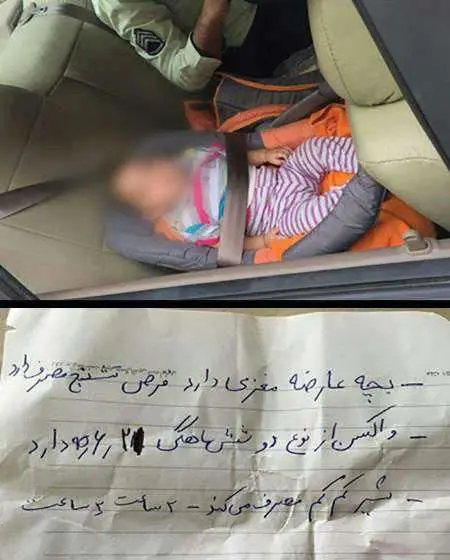 – بچه عارضه مغزی دارد قرص تشنج مصرف دارد
– واکسن از نوع دو شش ماهگی دارد
– شیر کم کم مصرف می کند – ساعت ساعت